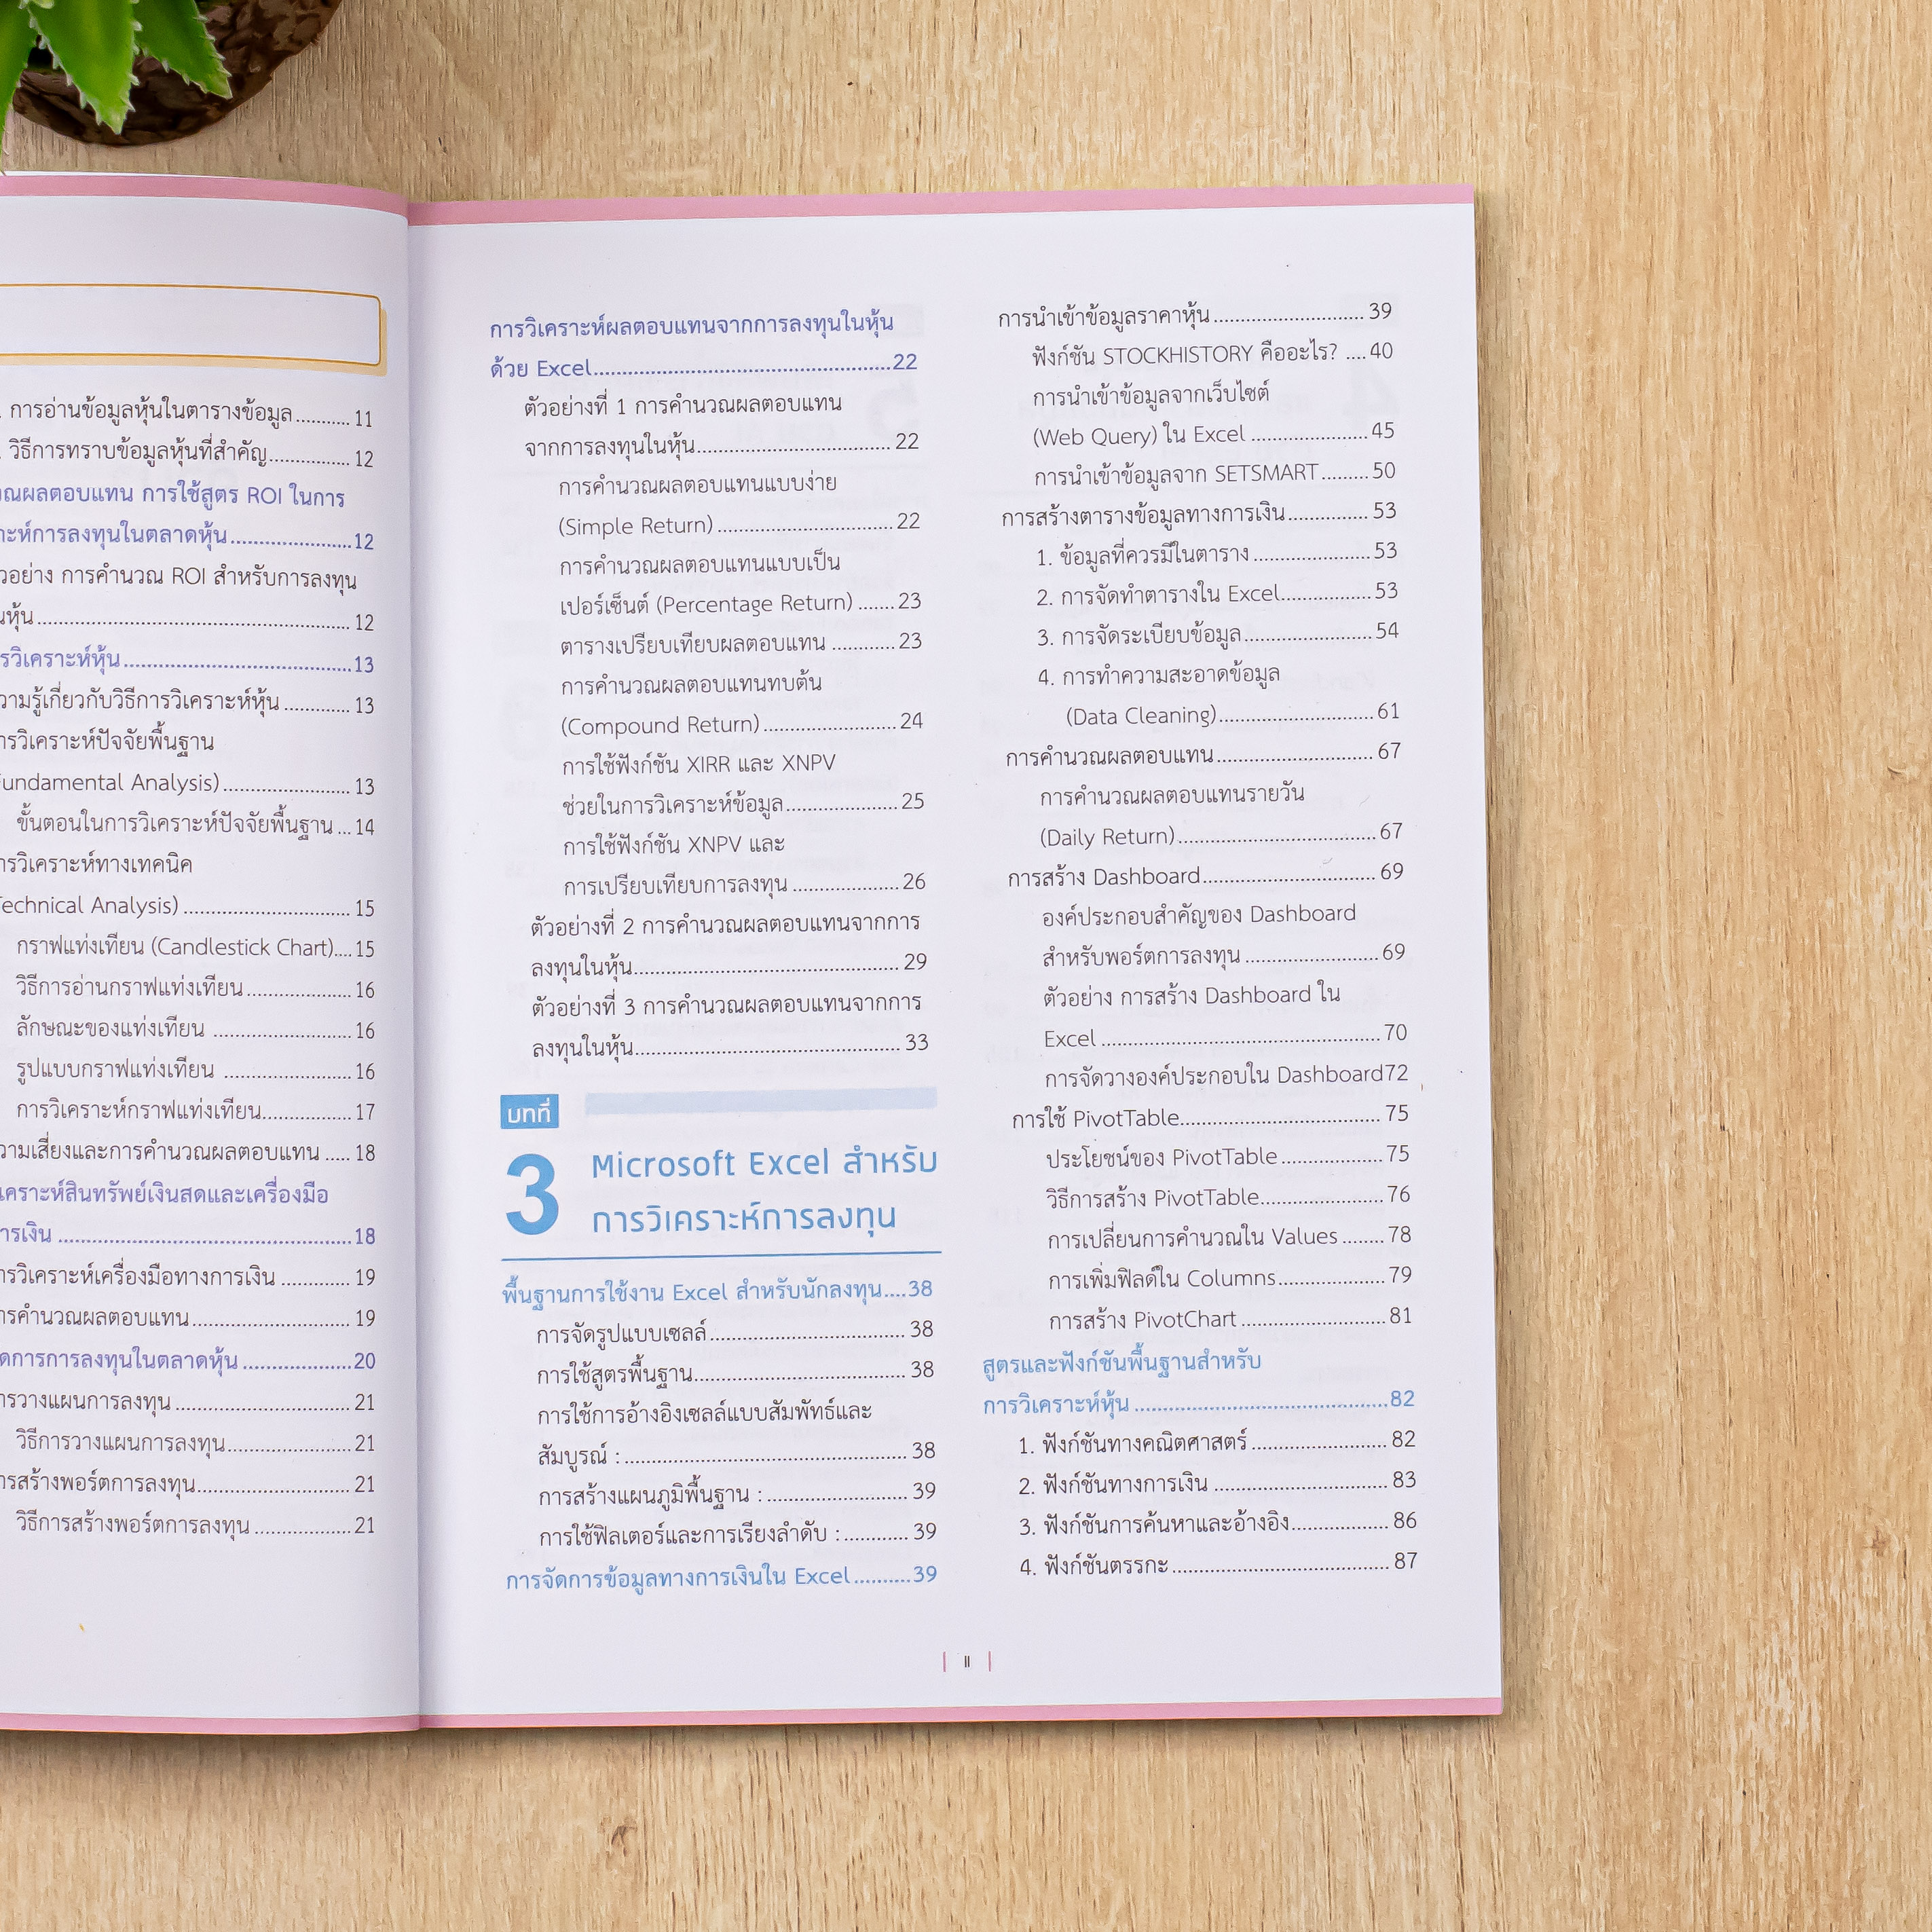 การอ่านข้อมูลหุ้นในตารางข้อมูล.......... 11
วิธีการทราบข้อมูลหุ้นที่สำคัญ............... 12
ผลตอบแทน การใช้สูตร ROI ในการ
การลงทุนในตลาดหุ้น......................12
การคำนวณ ROI สำหรับการลงทุน
หุ้น.......................................................... 12
วิเคราะห์หุ้น..........................................13
ความรู้เกี่ยวกับวิธีการวิเคราะห์หุ้น ............ 13
การวิเคราะห์ปัจจัยพื้นฐาน
Fundamental Analysis)........................ 13
ขั้นตอนในการวิเคราะห์ปัจจัยพื้นฐาน ...14
การวิเคราะห์ทางเทคนิค
Technical Analysis) ............................... 15
กราฟแท่งเทียน (Candlestick Chart)....15
วิธีการอ่านกราฟแท่งเทียน................... 16
ลักษณะของแท่งเทียน ......................... 16
รูปแบบกราฟแท่งเทียน ....................... 16
การวิเคราะห์กราฟแท่งเทียน................ 17
ความเสี่ยงและการคำนวณผลตอบแทน ..... 18
วิเคราะห์สินทรัพย์เงินสดและเครื่องมือ
การเงิน ......................................................18
การวิเคราะห์เครื่องมือทางการเงิน ............. 19
การคำนวณผลตอบแทน.............................. 19
จัดการการลงทุนในตลาดหุ้น ....................20
การวางแผนการลงทุน ................................. 21
วิธีการวางแผนการลงทุน....................... 21
การสร้างพอร์ตการลงทุน............................ 21
วิธีการสร้างพอร์ตการลงทุน ..................21
การวิเคราะห์ผลตอบแทนจากการลงทุนในหุ้น
ด้วย Excel.....................................................22
ตัวอย่างที่ 1 การคำนวณผลตอบแทน
จากการลงทุนในหุ้น.................................... 22
การคำนวณผลตอบแทนแบบง่าย
(Simple Return) ................................. 22
การคำนวณผลตอบแทนแบบเป็น
เปอร์เซ็นต์ (Percentage Return) .......23
ตารางเปรียบเทียบผลตอบแทน ............23
การคำนวณผลตอบแทนทบต้น
(Compound Return) ......................... 24
การใช้ฟังก์ชัน XIRR และ XNPV
ช่วยในการวิเคราะห์ข้อมูล..................... 25
การใช้ฟังก์ชัน XNPV และ
การเปรียบเทียบการลงทุน .................... 26
ตัวอย่างที่ 2 การคำนวณผลตอบแทนจากการ
ลงทุนในหุ้น.................................................. 29
ตัวอย่างที่ 3 การคำนวณผลตอบแทนจากการ
ลงทุนในหุ้น.................................................. 33
บทที่
3 Microsoft Excel สำหรับ
การวิเคราะห์การลงทุน
พื้นฐานการใช้งาน Excel สำหรับนักลงทุน....38
การจัดรูปแบบเซลล์..................................... 38
การใช้สูตรพื้นฐาน........................................ 38
การใช้การอ้างอิงเซลล์แบบสัมพัทธ์และ
สัมบูรณ์ :..................................................... 38
การสร้างแผนภูมิพื้นฐาน : .......................... 39
การใช้ฟิลเตอร์และการเรียงลำดับ :............ 39
การจัดการข้อมูลทางการเงินใน Excel..........39
การนำเข้าข้อมูลราคาหุ้น............................ 39
ฟังก์ชัน STOCKHISTORY คืออะไร? ....40
การนำเข้าข้อมูลจากเว็บไซต์
(Web Query) ใน Excel ......................45
การนำเข้าข้อมูลจาก SETSMART.........50
การสร้างตารางข้อมูลทางการเงิน............... 53
1. ข้อมูลที่ควรมีในตาราง ......................53
2. การจัดทำตารางใน Excel................. 53
3. การจัดระเบียบข้อมูล........................ 54
4. การทำความสะอาดข้อมูล
(Data Cleaning)............................. 61
การคำนวณผลตอบแทน............................. 67
การคำนวณผลตอบแทนรายวัน
(Daily Return)..................................... 67
การสร้าง Dashboard................................ 69
องค์ประกอบสำคัญของ Dashboard
สำหรับพอร์ตการลงทุน .........................69
ตัวอย่าง การสร้าง Dashboard ใน
Excel ....................................................70
การจัดวางองค์ประกอบใน Dashboard72
การใช้ PivotTable..................................... 75
ประโยชน์ของ PivotTable...................75
วิธีการสร้าง PivotTable....................... 76
การเปลี่ยนการคำนวณใน Values ........78
การเพิ่มฟิลด์ใน Columns.................... 79
การสร้าง PivotChart ........................... 81
สูตรและฟังก์ชันพื้นฐานสำหรับ
การวิเคราะห์หุ้น .............................................82
1. ฟังก์ชันทางคณิตศาสตร์ ......................... 82
2. ฟังก์ชันทางการเงิน ................................ 83
3. ฟังก์ชันการค้นหาและอ้างอิง.................. 86
4. ฟังก์ชันตรรกะ ........................................ 87
| II |